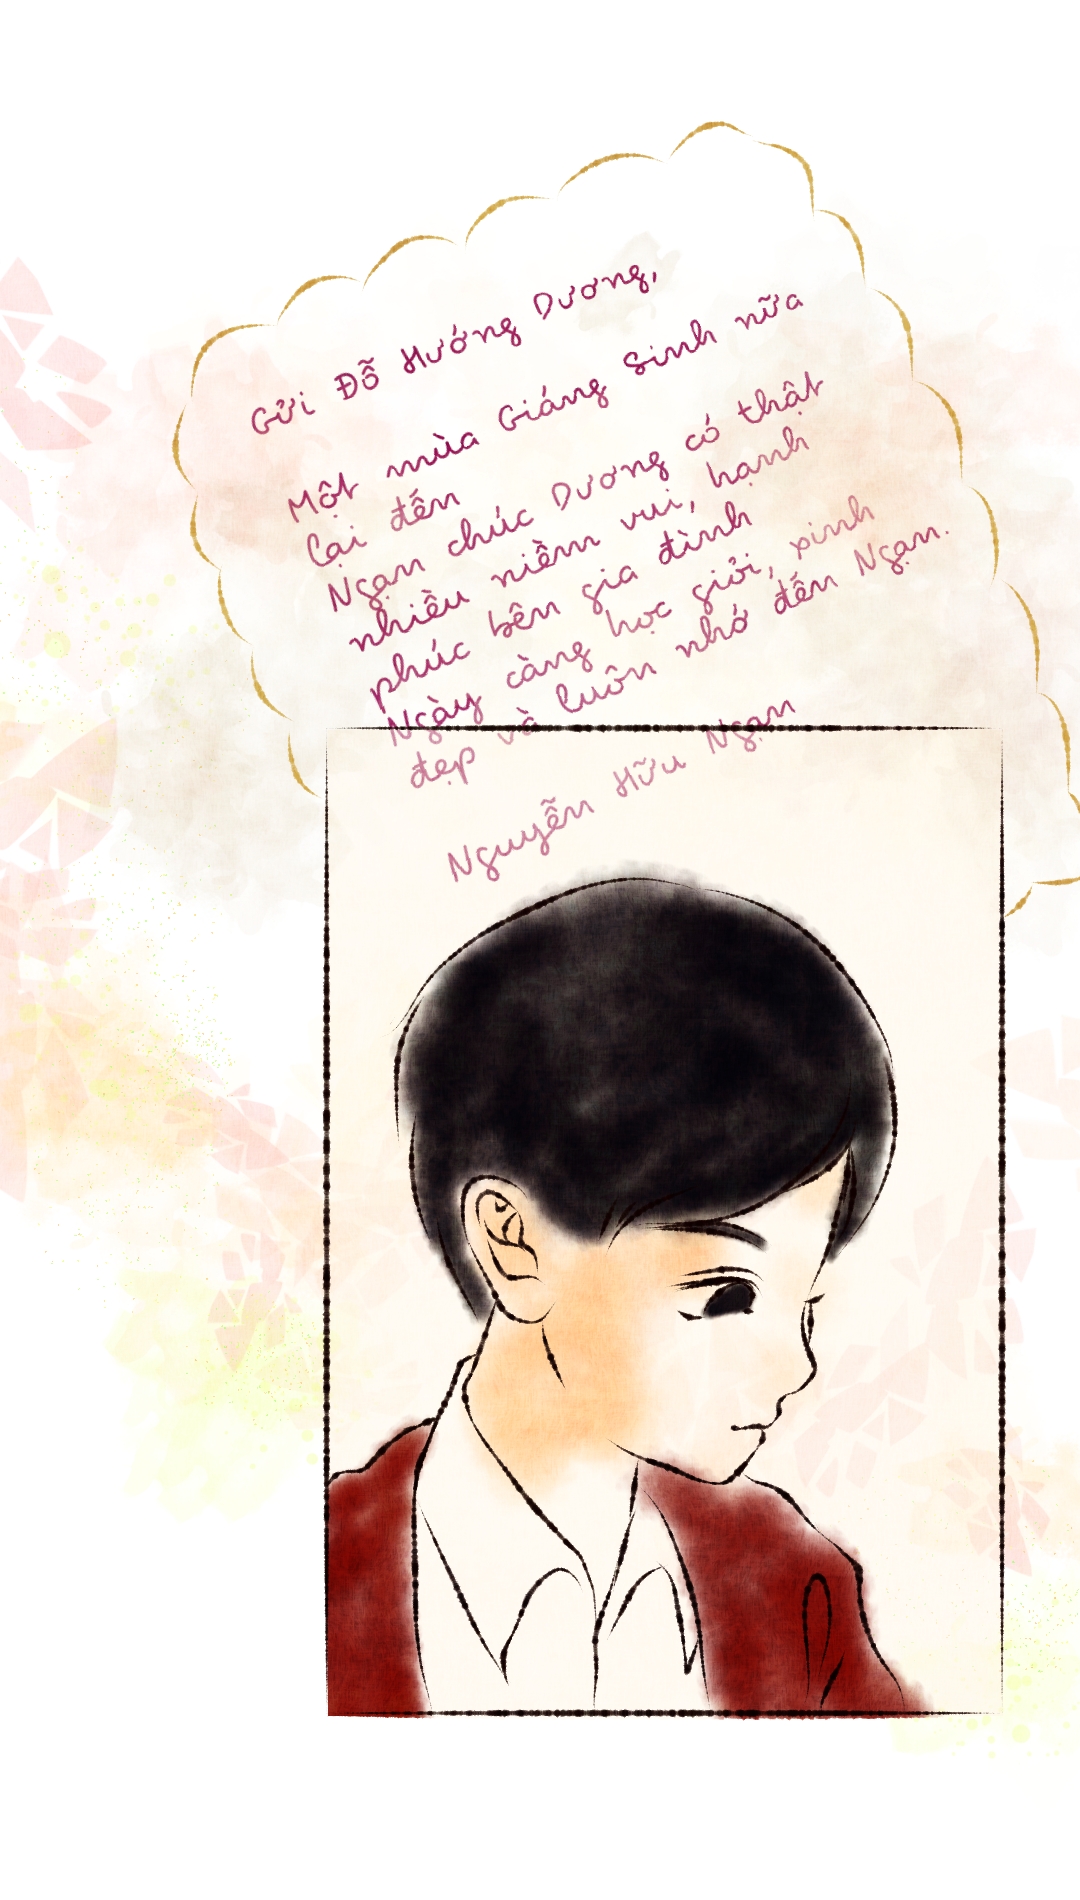 Gửi Đỗ Hướng Dương,
Một mùa Giáng Sinh nữa
lại đến
Ngạn chúc Dương có thật
nhiều niềm vui, hạnh
phúc bên gia đình
Ngày càng học giỏi, xinh
đẹp và luôn nhớ đến Ngạn.
Nguyễn Hữu Ngạn